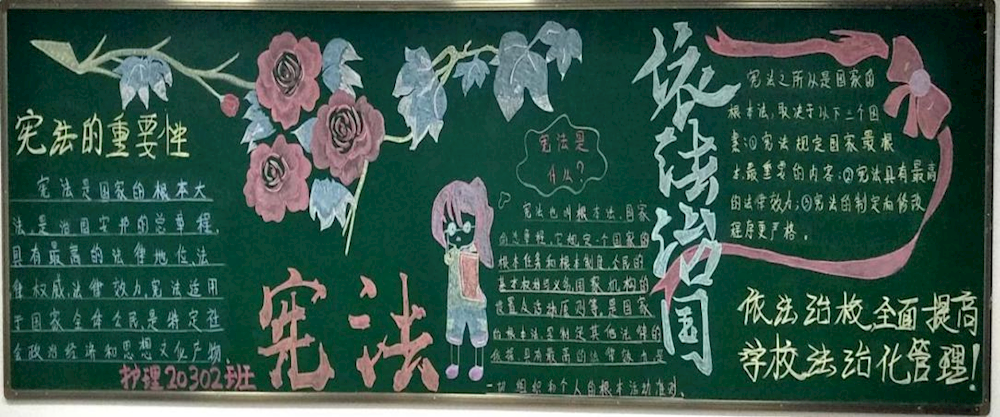 宪法的重要性
宪法是国家的根本大
法,是治国安邦的总章程,
具有最高的法律地位法
律权威,法律效力,宪法适用
于国家全体公民,是特定社
会政治经济和思想文化产物
护理20302班
宪法
宪法是
什么?
宪法也叫根本法,国家
的总章程,它规定一个国家的
根本任务和根本制度,公民的
基本权利义务国家机构的
设置及活动原则等,是国家
的根本法是制定其他法律的
依据,具有最高的法律效力是
一切组织和个人的根本活动准则.
依法治国
宪法之所以是国家的
根本法,取决于以下三个因
素:①宪法规定国家最根
本、最重要的内容;②宪法具有最高
的法律效力;③宪法的制定和修改
程序更严格。
依法治校全面提高
学校法治化管理!